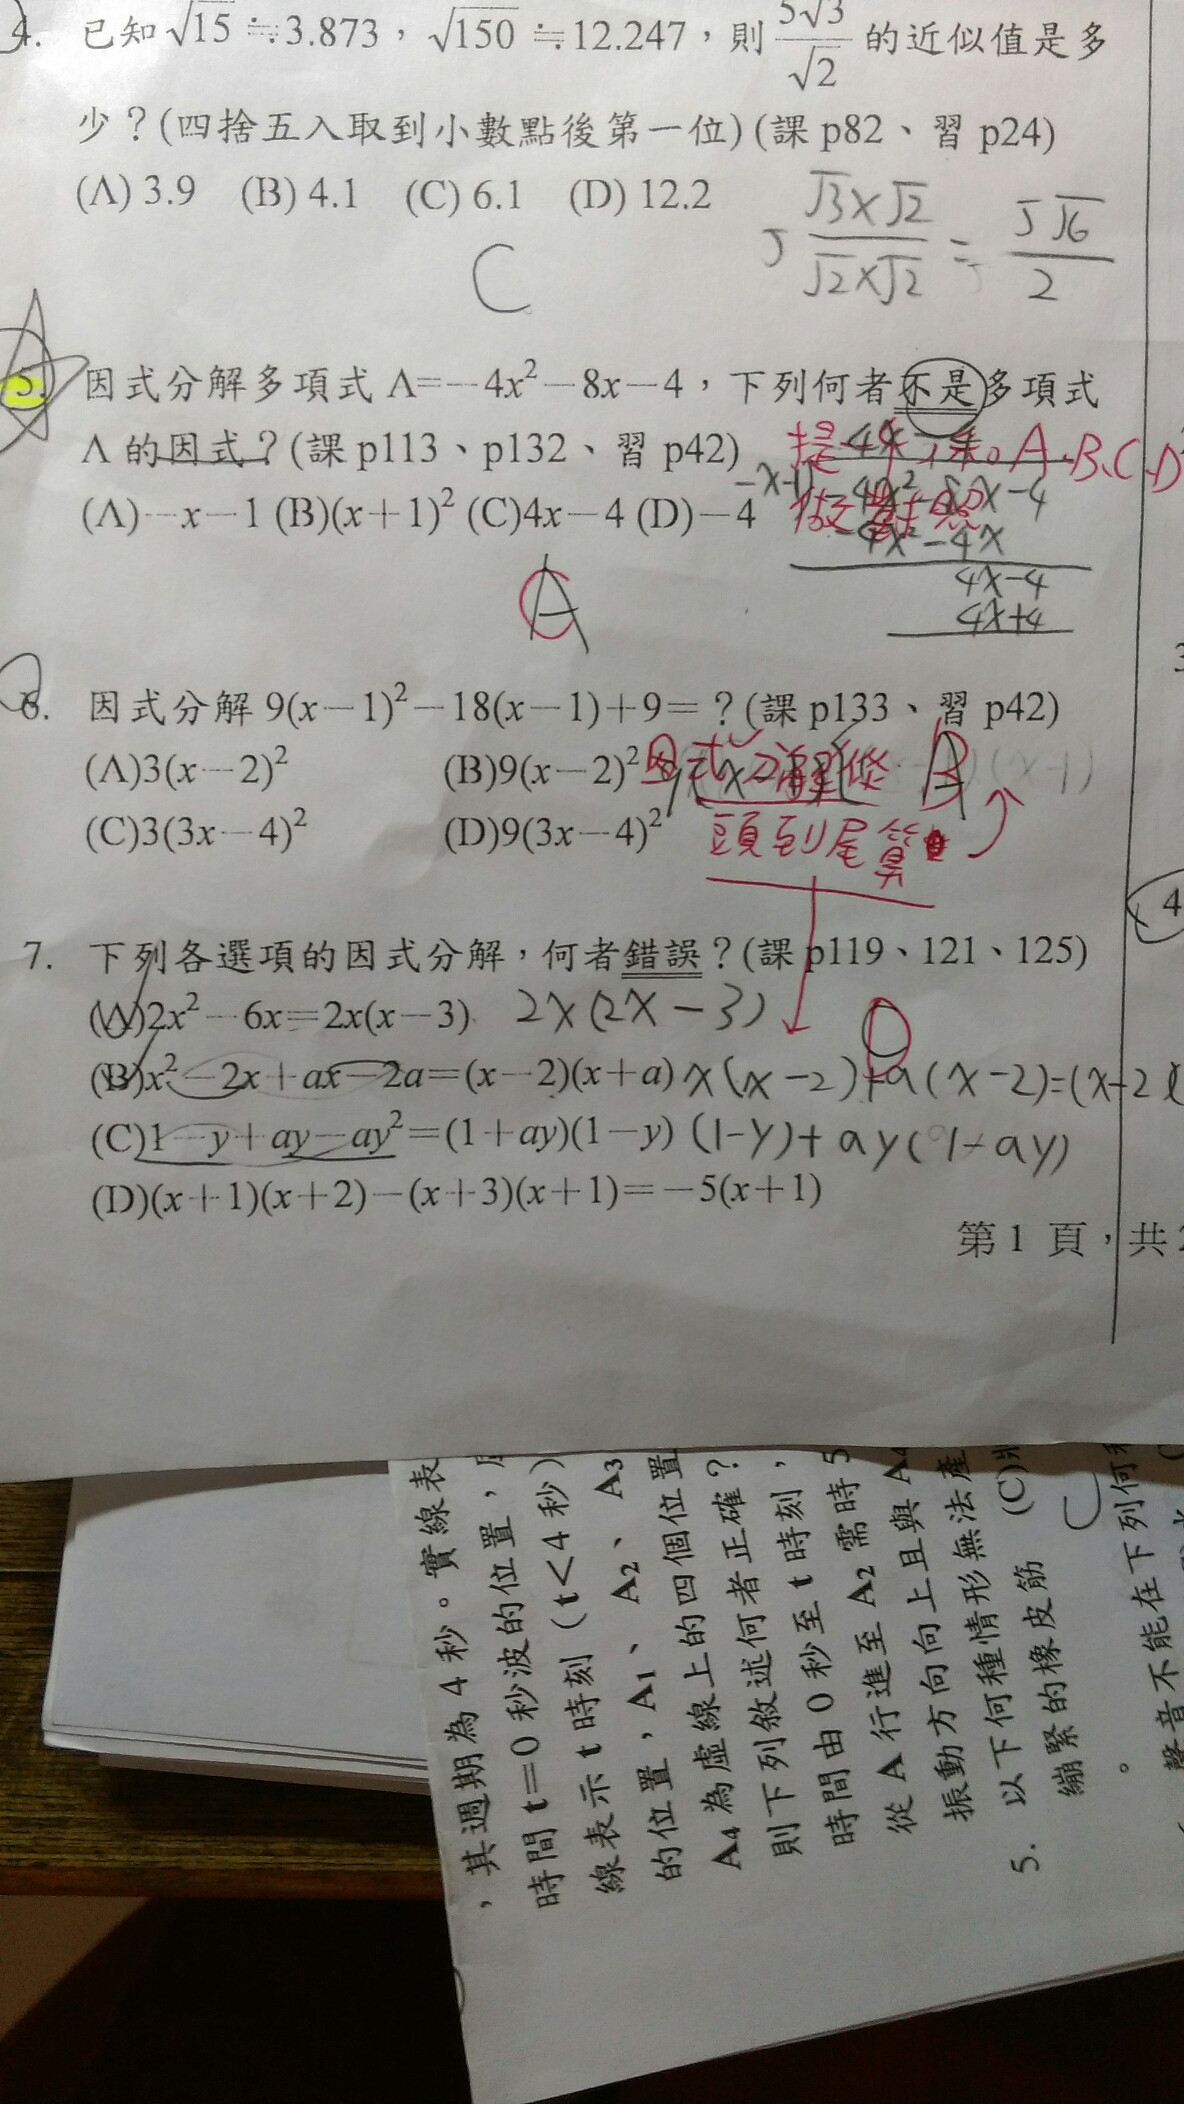 4. 已知√15≒3.873，√150≒12.247，則 5√3/√2 的近似值是多
少？(四捨五入取到小數點後第一位)(課 p82、習 p24)
(A) 3.9 (B) 4.1 (C) 6.1 (D) 12.2
C
5 √3×√2/√2×√2 = 5√6/2
5. 因式分解多項式 A=－4x²－8x－4，下列何者不是多項式
A 的因式？(課 p113、p132、習 p42)
(A)－x－1 (B)(x＋1)² (C)4x－4 (D)－4
A.B.C.D
-x-1
-4x²-8x-4
-4x²-4x
4x-4
4x+4
A
C
6. 因式分解 9(x－1)²－18(x－1)＋9=？(課 p133、習 p42)
(A)3(x－2)² (B)9(x－2)²
因式分解從
B
(x-1)
(C)3(3x－4)² (D)9(3x－4)²
頭到尾算
7. 下列各選項的因式分解，何者錯誤？(課 p119、121、125)
(A)2x²－6x=2x(x－3) 2x(2x-3)
(B)x²－2x＋ax－2a=(x－2)(x＋a) x(x-2)+a(x-2)=(x-2)(
(C)1－y＋ay－ay²=(1＋ay)(1－y) (1-y)+ay(1-ay)
(D)(x＋1)(x＋2)－(x＋3)(x＋1)=－5(x＋1)
第 1 頁，共 2
4
，其週期為 4 秒。實線表
時間 t=0 秒波的位置，
線表示 t 時刻 (t<4 秒)
的位置，A1、A2、A3
A4 為虛線上的四個位置
則下列敘述何者正確？
時間由 0 秒至 t 時刻，
從 A 行進至 A2 需時 5
振動方向向上且與 A4
5. 以下何種情形無法產
繃緊的橡皮筋 (C)
。
C
聲音不能在下列何